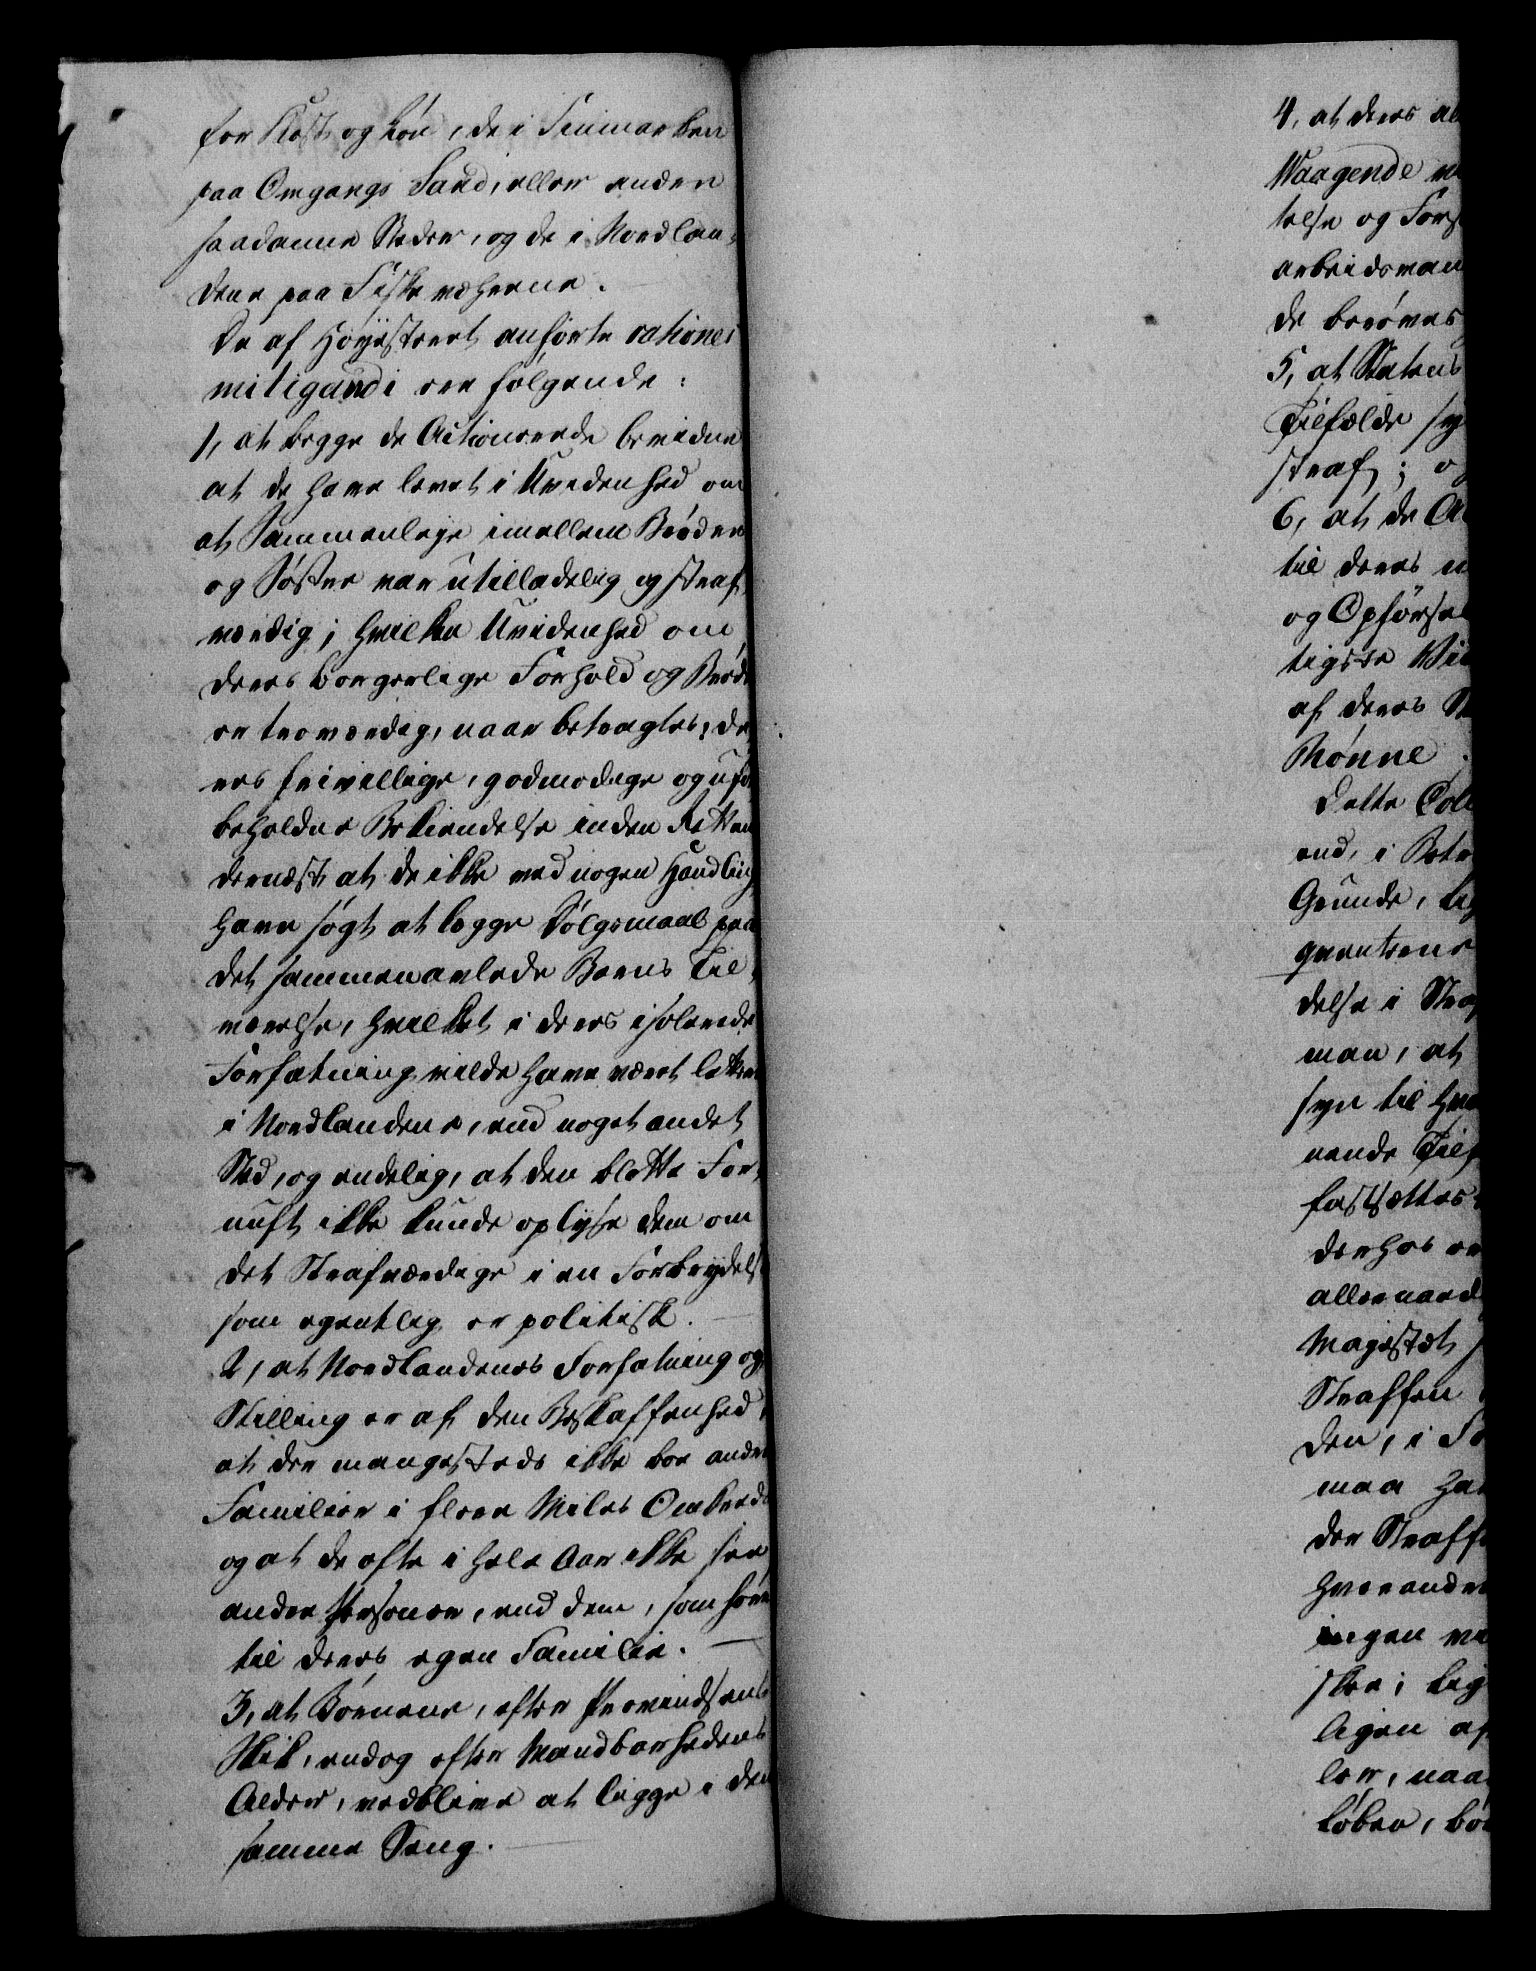 for Kost og Løn, de i Finmarken
paa Omgangs Sand, eller anden
saadanne Steder, og de i Nordlan-
dene paa Fiskeværerne.
De af Høyesteret anførte rationes
mitigandi ere følgende:
1, at begge de Actionerede bevidne
at de have levet i Uvidenhed om
at Sammenleye imellem Brøder
og Søster var utilladelig og straf-
værdig; hvilken Uvidenhed om
deres borgerlige Forhold og Brøde
er troværdig, naar betragtes: de-
res frivillige, godmodige og ufor
beholdne Bekiendelse inden Retten
dernæst at de ikke ved nogen Handling
have søgt at lægge Dølgsmaal paa
det sammenavlede Barns Til-
værelse, hvilket i deres isolerede
Forfatning vilde have været lettere
i Nordlandene, end noget andet
Sted, og endelig, at den blotte For-
nuft ikke kunde oplyse dem om
det Strafværdige i en Forbrydelse
som egentlig er politisk.
2, at Nordlandenes Forfatning og
Stilling er af den Beskaffenhed,
at der mangesteds ikke boe andre
Familier i flere Miles Omkreds
og at de ofte i hele Aar ikke see
andre Personer, end dem, som høre
til deres egen Familie.
3, at Børnene, efter Provindsens
Skik, endog efter Mandbarhedens
Alder, vedblive at ligge i den
samme Seng.
4, at deres al
Waagende
telse og Fors
arbeidsvan
de berøves
5, at Statens
Tilfælde sy
straf; o
6, at de Ac
til deres u
og Opførse
tigste Vid
af deres S
Rønne.
Dette Coll
end, i Betr
Grunde, lig
qventerne
delse i Straf
man, at
syn til hva
nende Tilf
fastsættes
derhos er
allernaad
Majestet
Straffen
den, i F
maa ha
der Straff
hverandre
ingen ve
skee; lig
ligen af
ler, naa
løber, bø